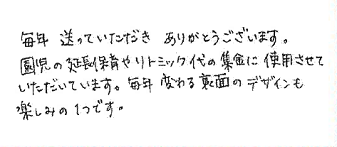 毎年 送っていただき ありがとうございます。
園児の延長保育やリトミック代の集金に使用させて
いただいています。毎年 変わる裏面のデザインも
楽しみの1つです。